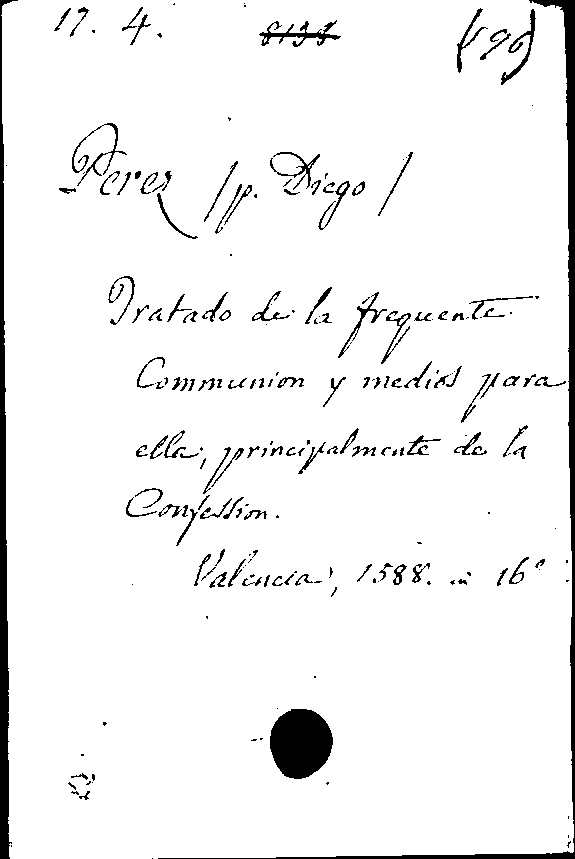 17. 4. 8138 (496)
Perez /p. Diego/
Tratado de la frequente
Communion y medios para
ella, principalmente de la
Confession.
Valencia, 1588. in 16°